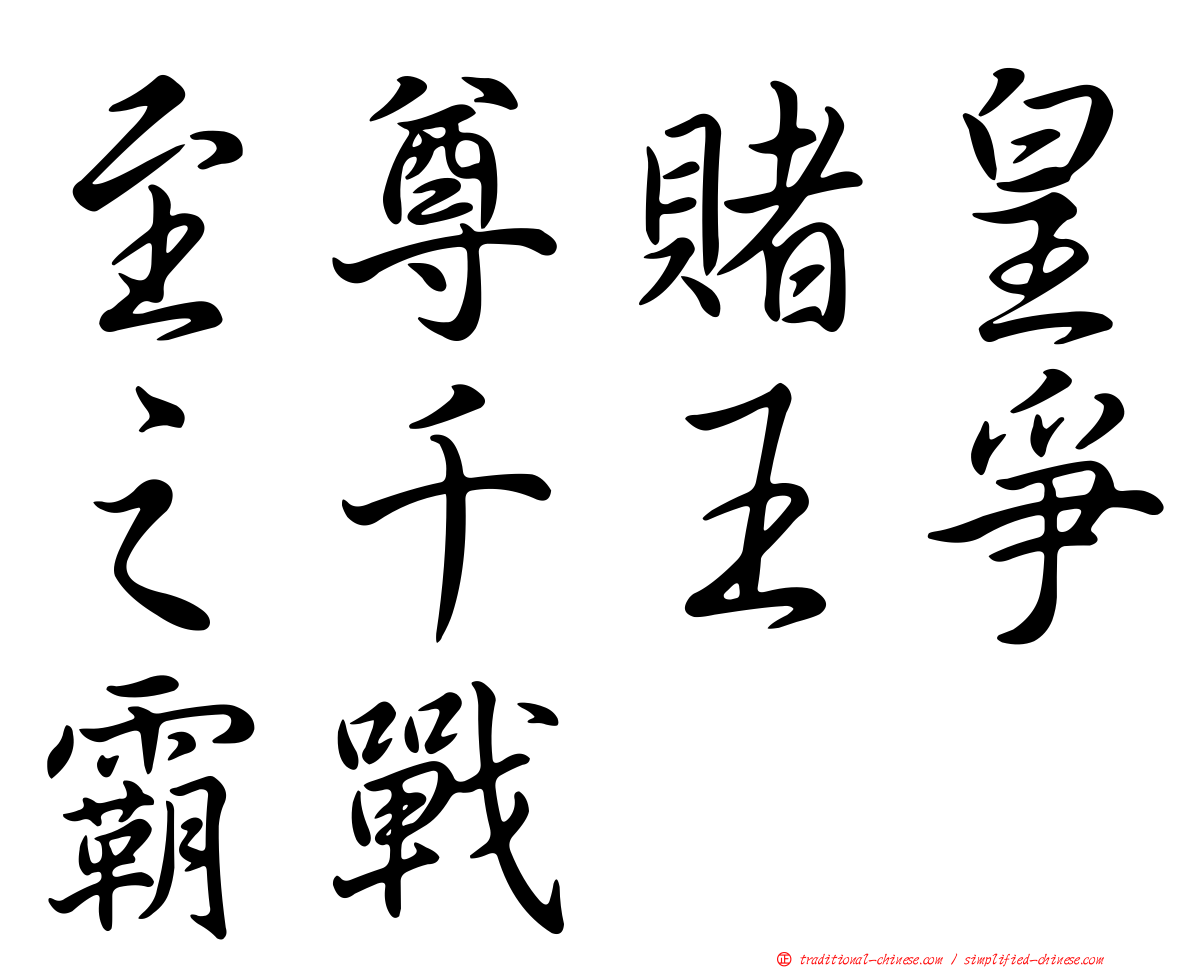 至尊賭皇
之千王爭
霸戰
㊣ traditional-chinese.com / simplified-chinese.com